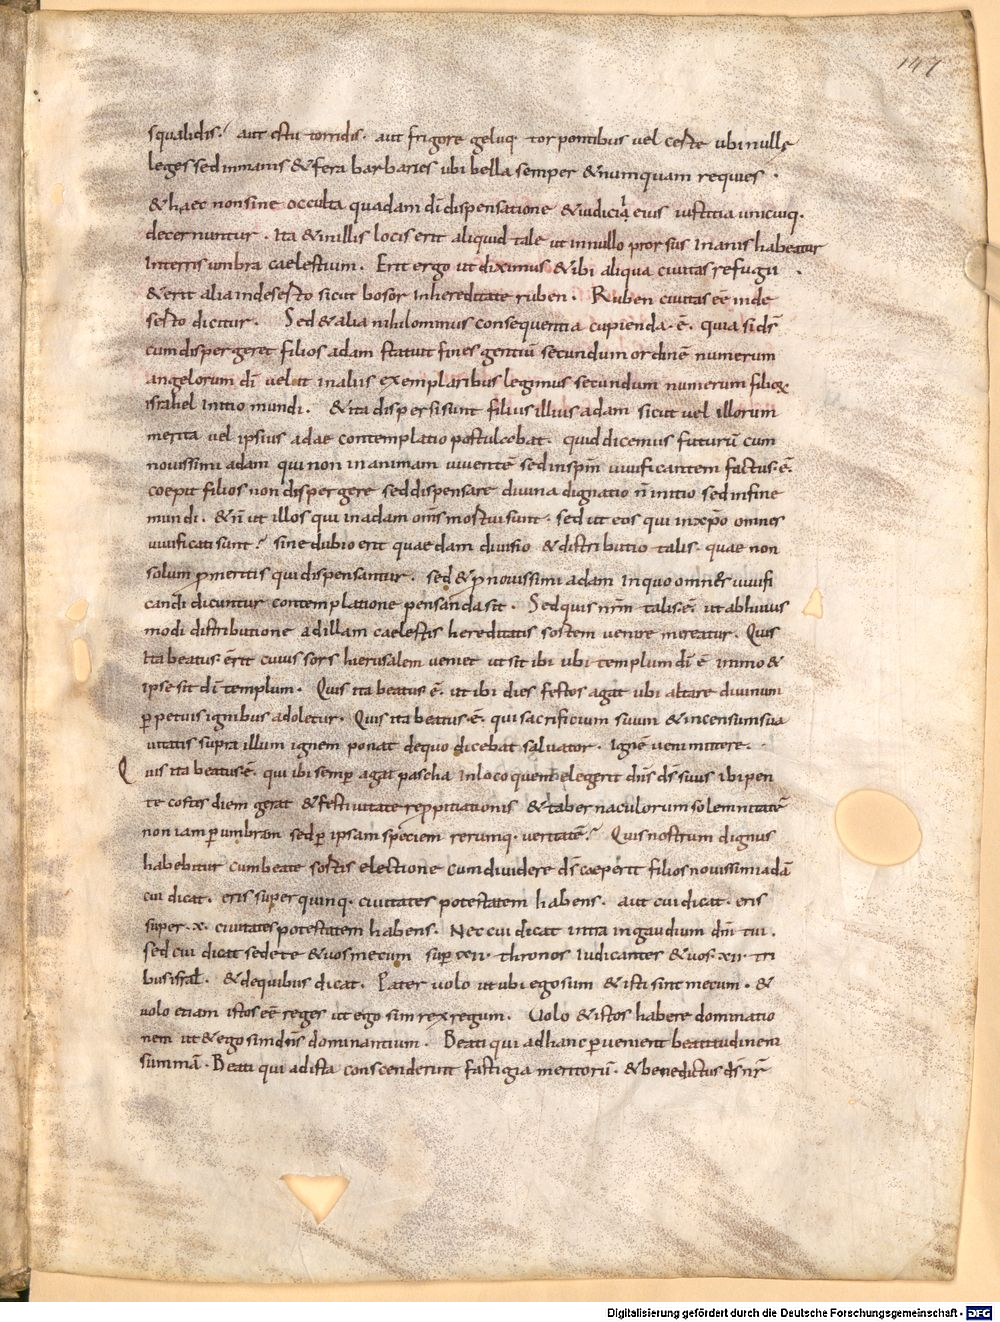 147
squalidis. aut ęstu torridis. aut frigore geluq. torpentibus uel certe ubi nullę
leges sed inmanis & fera barbaries ubi bella semper & numquam requies.
& haec non sine occulta quadam dī dispensatione & iudicią eius iustitia unicuiq.
decernuntur. Ita & in illis locis erit aliquid tale ut in nullo prorsus inanis habeatur
in terris umbra caelestium. Erit ergo ut diximus & ibi aliqua ciuitas refugii.
& erit alia in deserto sicut bosor in hereditate ruben. Ruben ciuitas eē in de
serto dicitur. Sed & alia nihilominus consequentia cupienda.ē. quia si dš
cum dispergeret filios adam statuit fines gentiū secundum ordinē numerum
angelorum dī uel ut in aliis exemplaribus legimus secundum numerum filioꝝ
israhel initio mundi. & ita dispersi sunt filii illius adam sicut uel illorum
merita uel ipsius adae contemplatio postulabat. quid dicemus futurū cum
nouissimi adam qui non in animam uiuentē sed in spm̄ uiuificantem factus.ē.
coepit filios non dispergere sed dispensare diuina dignatio n̄ initio sed in fine
mundi. & n̄ ut illos qui in adam om̄s mortui sunt. sed ut eos qui in xp̄o omnes
uiuificati sunt? sine dubio erit quaedam diuisio & distributio talis. quae non
solum ꝓ meritis qui dispensantur. sed & ꝓ nouissimi adam in quo omnes uiuifi
candi dicuntur contemplatione pensanda sit. Sed quis nr̄m talis.ē. ut ab huius
modi distributione ad illam caelestis hereditatis sortem uenire mereatur. Quis
ita beatus erit cuius sors hierusalem ueniet ut sit ibi ubi templum dī ē immo &
ipse sit dī templum. Quis ita beatus.ē. ut ibi dies festos agat ubi altare diuinum
ꝑpetuis ignibus adoletur. Quis ita beatus.ē. qui sacrificium suum & incensum sua
uitatis supra illum ignem ponat de quo dicebat saluator. Ignē ueni mittere.
Quis ita beatus.ē. qui ibi semꝑ agat pascha in loco quem elegerit dn̄s dš suus ibi pen
te costes diem gerat & festiuitate repꝓpitiationis & tabernaculorum solemnitatē
non iam ꝑ umbram sed ꝑ ipsam speciem rerumq. ueritatē? Quis nostrum dignus
habebitur cum beate sortis electione cum diuidere dš coeperit filios nouissimi adā
cui dicat. eris super quinq. ciuitates potestatem habens. aut cui dicat. eris
super .x. ciuitates potestatem habens. Nec cui dicat intra in gaudium dn̄i tui.
sed cui dicat sedete & uos mecum suꝑ xii. thronos iudicantes & uos .xii. tri
bus isrl̄. & de quibus dicat. Pater uolo ut ubi ego sum & isti sint mecum. &
uolo etiam istos eē reges ut ego sim rex regum. Uolo & istos habere dominatio
nem ut & ego sim dn̄s dominantium. Beati qui ad hanc ꝑuenient beatitudinem
summā. Beati qui ad ista conscenderint fastigia meritorū. & benedictus dš nr̄
Digitalisierung gefördert durch die Deutsche Forschungsgemeinschaft - DFG